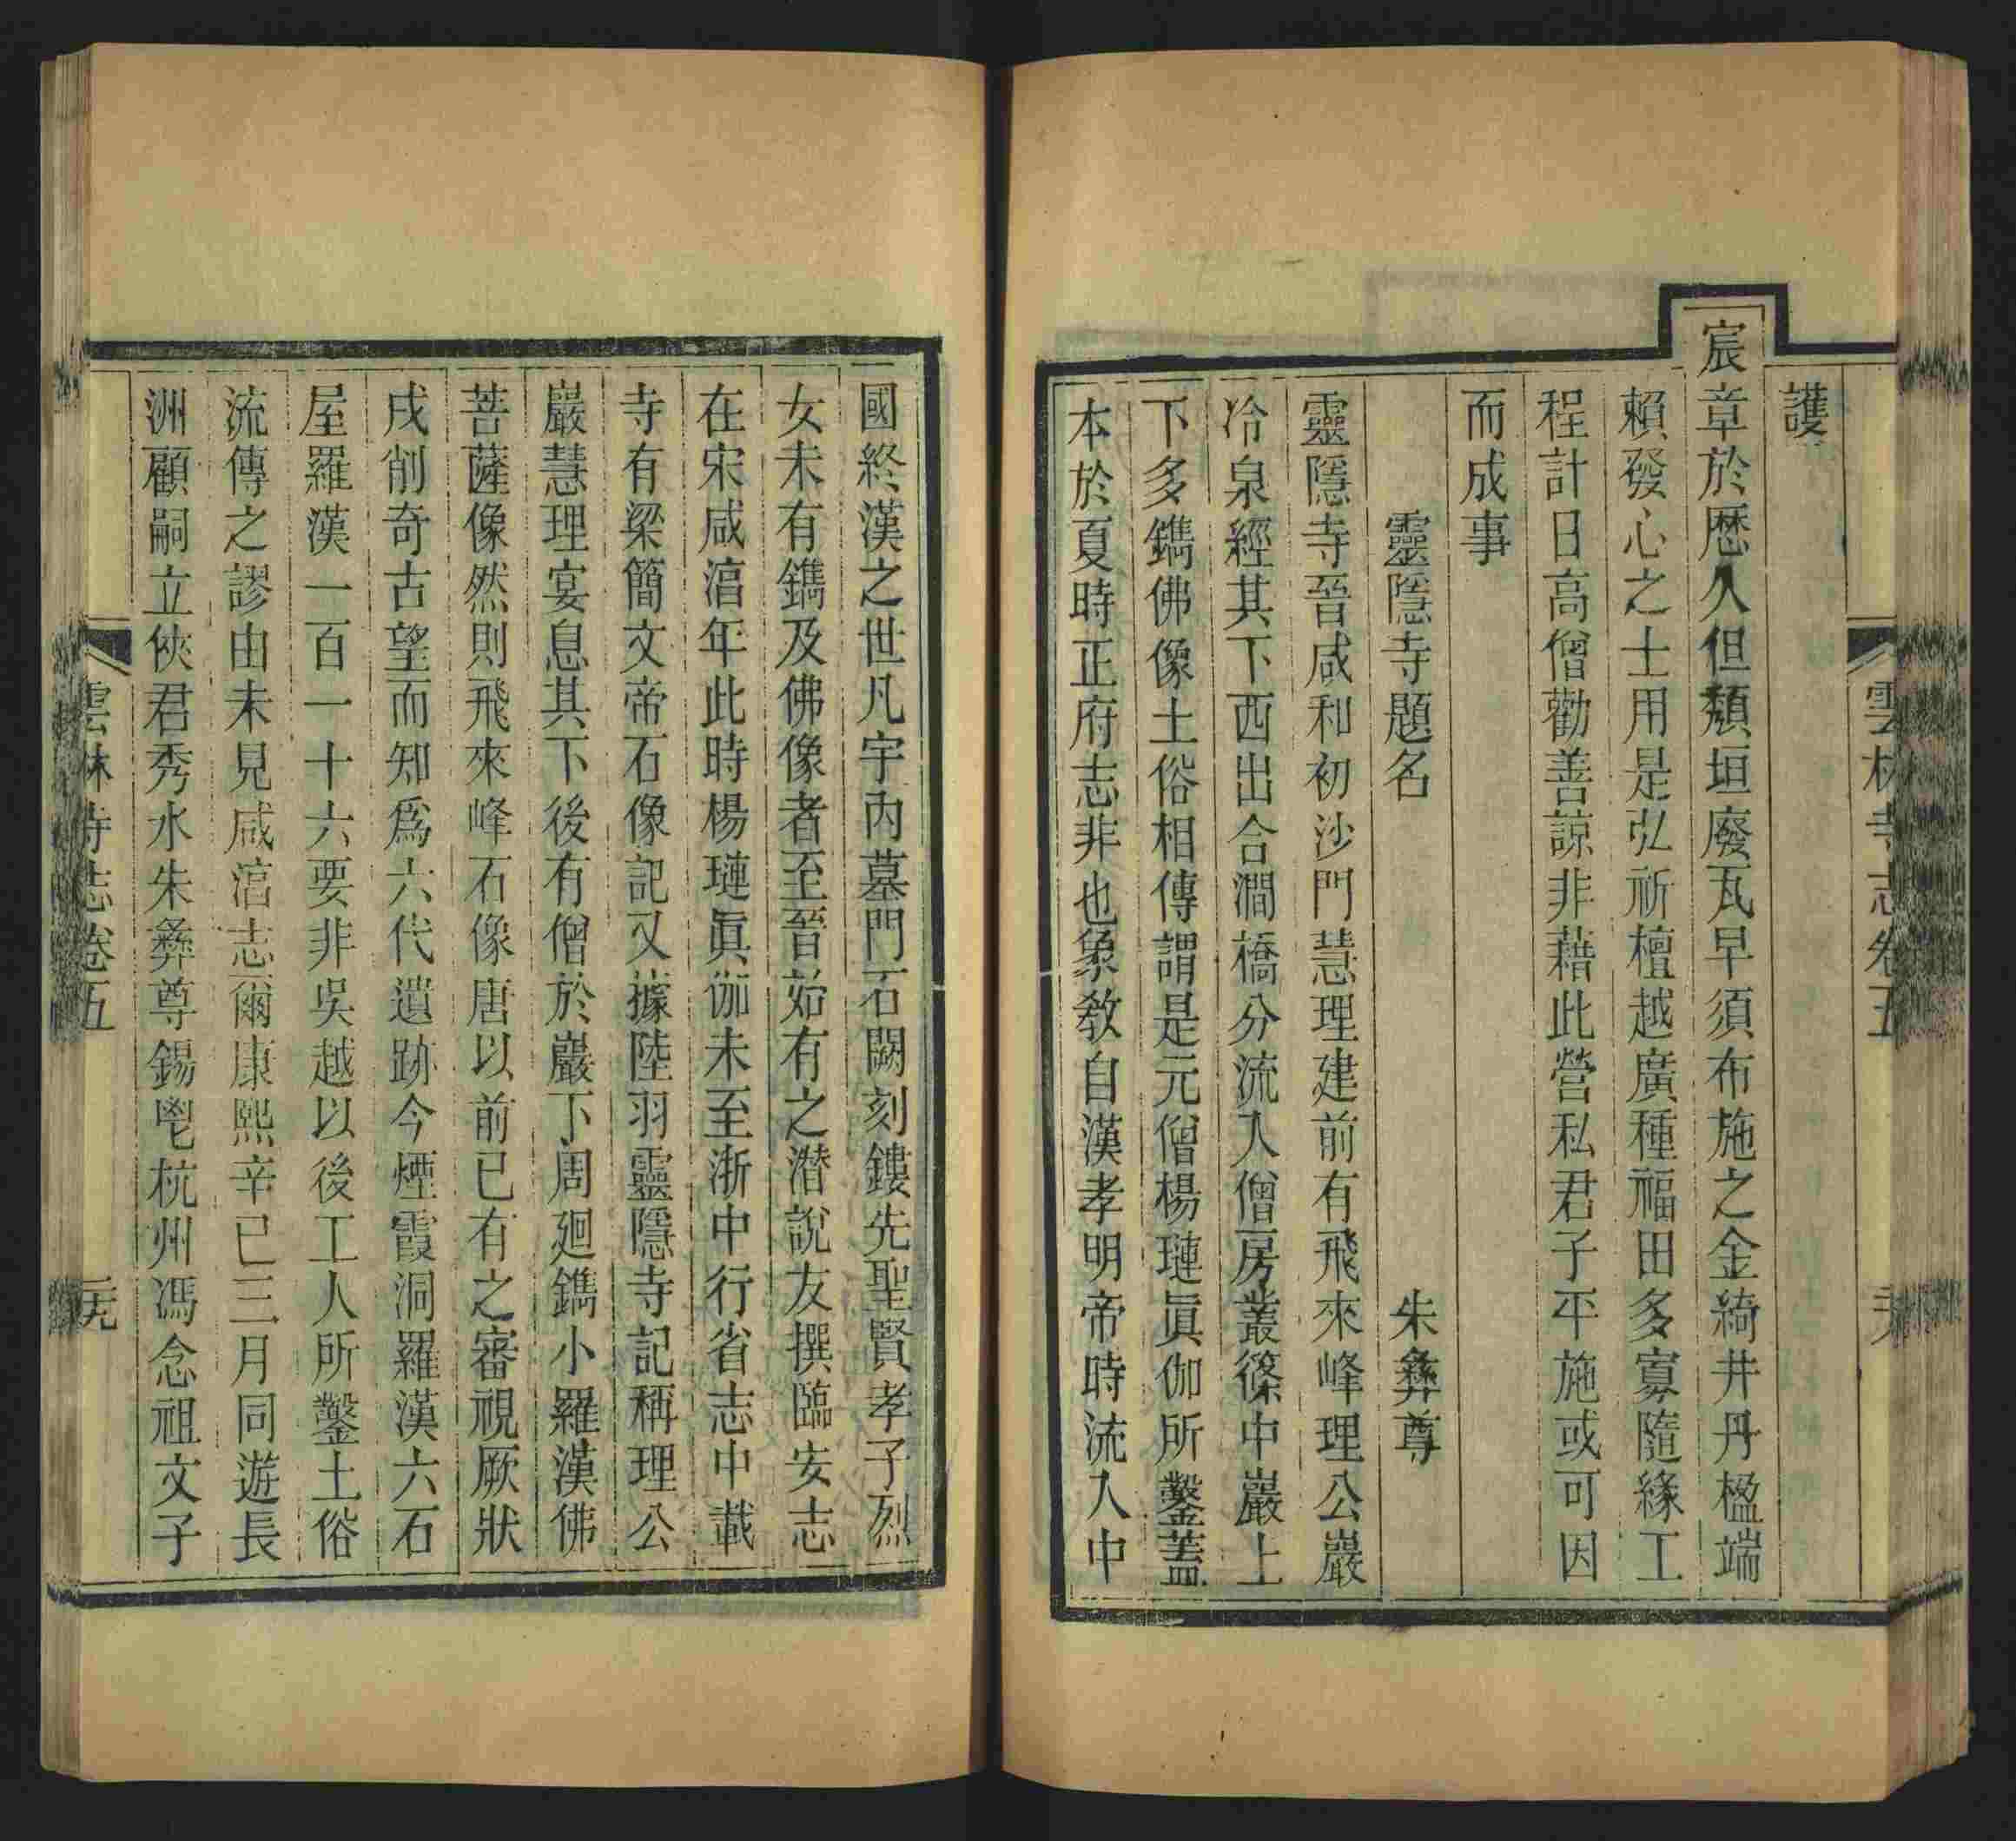 雲林寺志卷五
護
宸章於歷久但頽垣廢瓦早須布施之金綺井丹楹端
賴發心之士用是弘祈檀越廣種福田多寡隨緣工
程計日高僧勸善諒非藉此營私君子平施或可因
而成事
靈隱寺題名 朱彝尊
靈隱寺晉咸和初沙門慧理建前有飛來峰理公巖
冷泉經其下西出合澗橋分流入僧房叢篠中巖上
下多鐫佛像土俗相傳謂是元僧楊璉眞伽所鑿蓋
本於夏時正府志非也象敎自漢孝明帝時流入中
國終漢之世凡宇內墓門石闕刻鏤先聖賢孝子烈
女未有鐫及佛像者至晉始有之潛說友撰臨安志
在宋咸淳年此時楊璉眞伽未至浙中行省志中載
寺有梁簡文帝石像記又據陸羽靈隱寺記稱理公
巖慧理宴息其下後有僧於巖下周廻鐫小羅漢佛
菩薩像然則飛來峰石像唐以前已有之審視厥狀
戌削奇古望而知爲六代遺跡今煙霞洞羅漢六石
屋羅漢一百一十六要非吳越以後工人所鑿土俗
流傳之謬由未見咸淳志爾康熙辛巳三月同遊長
洲顧嗣立俠君秀水朱彝尊錫鬯杭州馮念祖文子
雲林寺志卷五